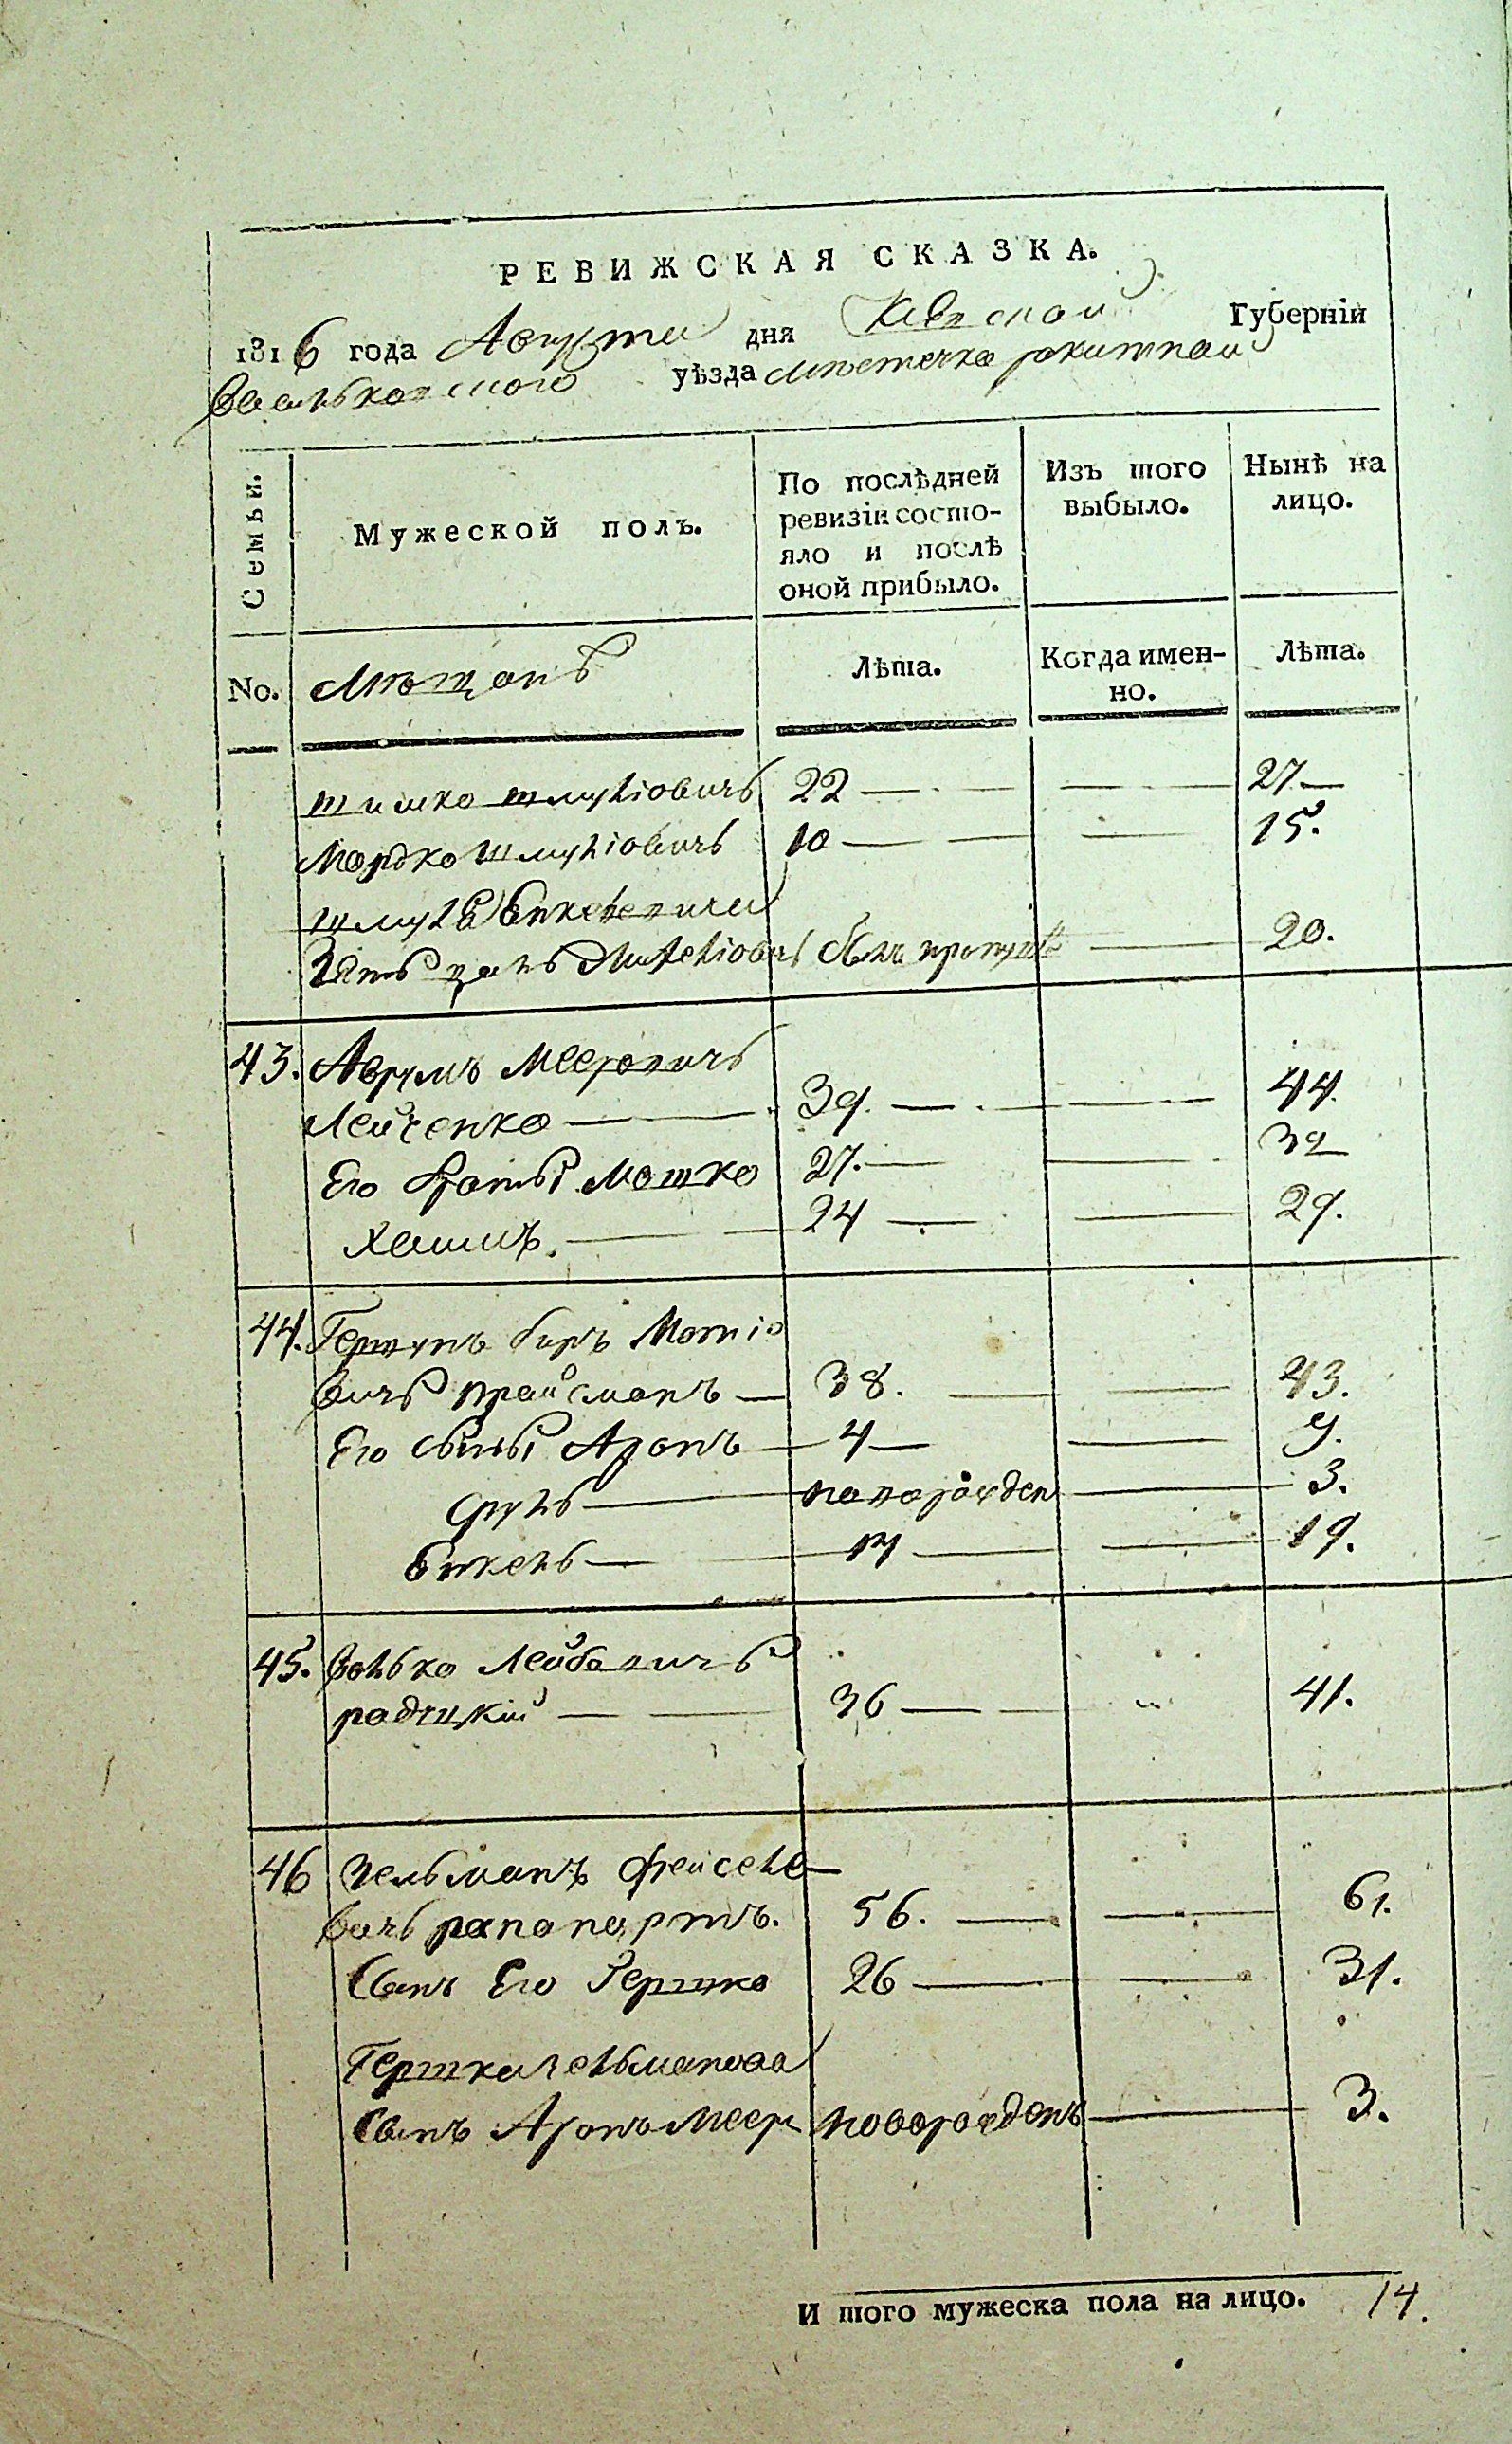 РЕВИЖСКАЯ СКАЗКА.
1816 года Августа дня Киевской Губерніи
Васильковского уѣзда мѣстечка рокитной
Семьи.
Мужеской полъ.
По послѣдней ревизіи состояло и послѣ оной прибыло.
Изъ того выбыло.
Нынѣ на лицо.
No. Мѣщанъ Лѣта. Когда именно. Лѣта.
шимко шмулiовичъ 22 — — 27 —
Мордко шмулiовичъ 10 — — 15.
шмуля Янкелевича
Зять былъ пропущ — 20.
43. Аврумъ Мееровичъ
Лейченко — 39. — — 44.
Его братья Мошко 27. — — 32
Хаимъ. — 24 — — 29.
44. Гершунъ Беръ Мошко
вичъ прайсманъ — 38. — — 43.
Его сыны Аронъ — 4 — — 9.
Сруль — новорожден — 3.
Янкель — 14 — — 19.
45. Волько Лейбовичъ
радицкій — — 36 — — 41.
46 Зельманъ Фейселе
вичъ рапапортъ. 56. — — 61.
Сынъ Его Гершко 26 — — 31.
Гершка Зельманова
Сынъ Аронъ Меер новорожденъ — 3.
И того мужеска пола на лицо. 14.